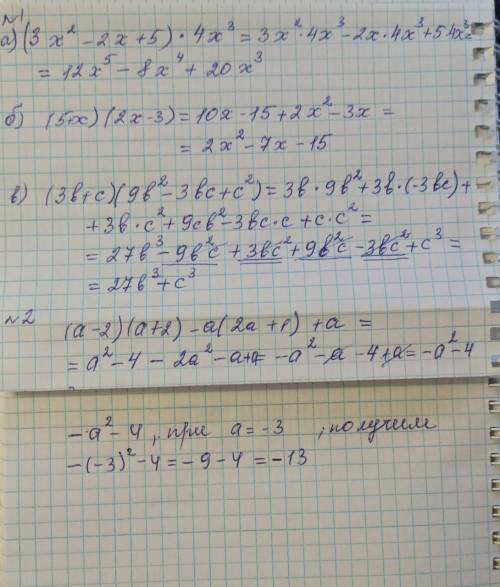 №1
а) (3x² - 2x + 5) · 4x³ = 3x² · 4x³ - 2x · 4x³ + 5·4x³ =
= 12x⁵ - 8x⁴ + 20x³
б) (5+x)(2x-3) = 10x - 15 + 2x² - 3x =
= 2x² - 7x - 15
в) (3в+с)(9в² - 3вс + с²) = 3в · 9в² + 3в · (-3вс) +
+ 3в · с² + 9св² - 3вс · с + с · с² =
= 27в³ - 9в²с + 3вс² + 9в²с - 3вс² + с³ =
= 27в³ + с³
№2
(а-2)(а+2) - а(2а+1) + а =
= а² - 4 - 2а² - а + а = -а² - а - 4 + а = -а² - 4
-а² - 4, при а = -3 ; получим
-(-3)² - 4 = -9 - 4 = -13